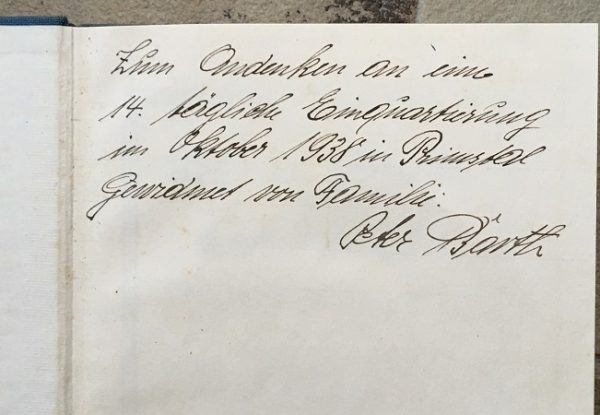 Zum Andenken an eine
14. tägliche Einquartierung
im Oktober 1938 in Primstal
Gewidmet von Familie.
Peter Barth